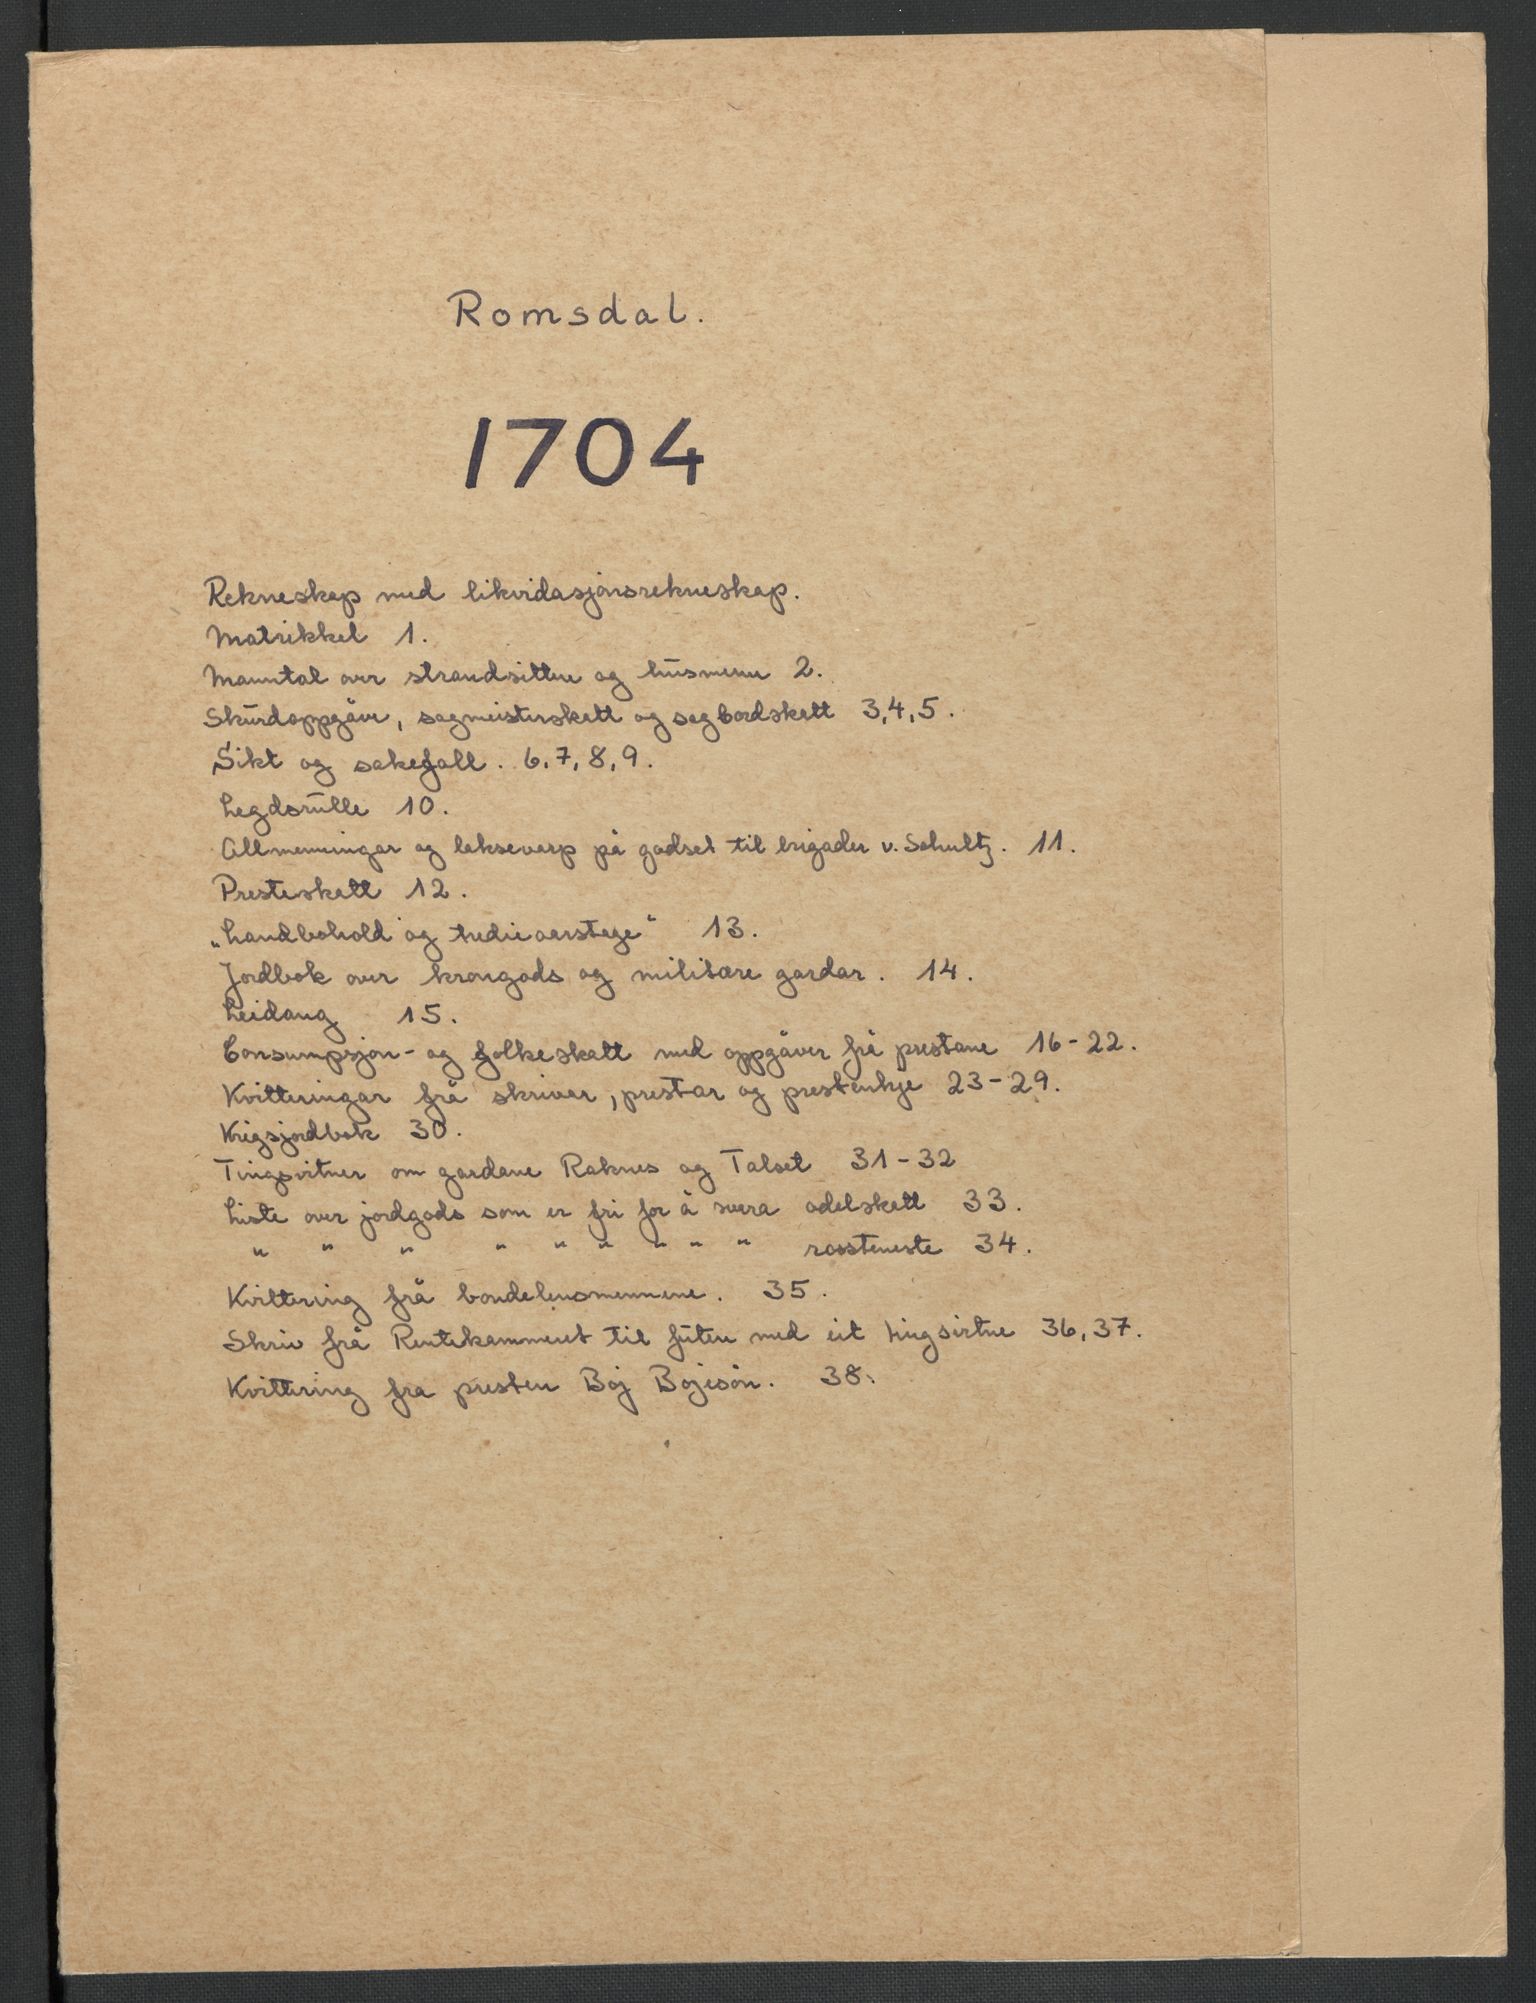 Romsdal.
1704
Rekneskap med likvidasjonsrekneskap.
Matrikkel 1.
Manntal over strandsittere og husmenn 2.
Skurdoppgåve, sagmeisterskatt og sagbordskatt 3,4,5.
Sikt og sakefall. 6,7,8,9.
Legdsrulle 10.
Allmenningar og laksevarp på godset til brigader v. Schultz. 11.
Presteskatt 12.
„Landbohold og tredieaarstage“ 13.
Jordbok over krongods og militære gardar. 14.
Leidang 15.
Consumpsjon- og folkeskatt med oppgåver frå prestane 16-22.
Kvitteringar frå skrivar, prestar og prestenkje 23-29.
Krigsjordbok 30.
Tingsvitner om gardane Raknes og Talset 31-32
Liste over jordgods som er fri for å svara odelskatt 33.
" " " " " " " " " rossteneste 34.
Kvittering frå bondelensmennene. 35.
Skriv frå Rentekammeret til futen med eit tingsvitne 36,37.
Kvittering fra presten Boj Bojesøn. 38.